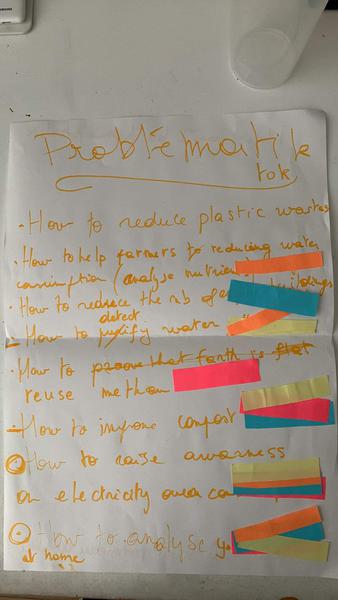 Problématik
tok
· How to reduce plastic wastes
· How to help farmers to reducing water
consumption (analyse nutrient
· How to reduce the nb of buildings
detect
- How to purify water
· How to prove that Earth is flat
reuse methan
- How to improve compost
How to raise awarness
on electricity over
· How to analyse
at home